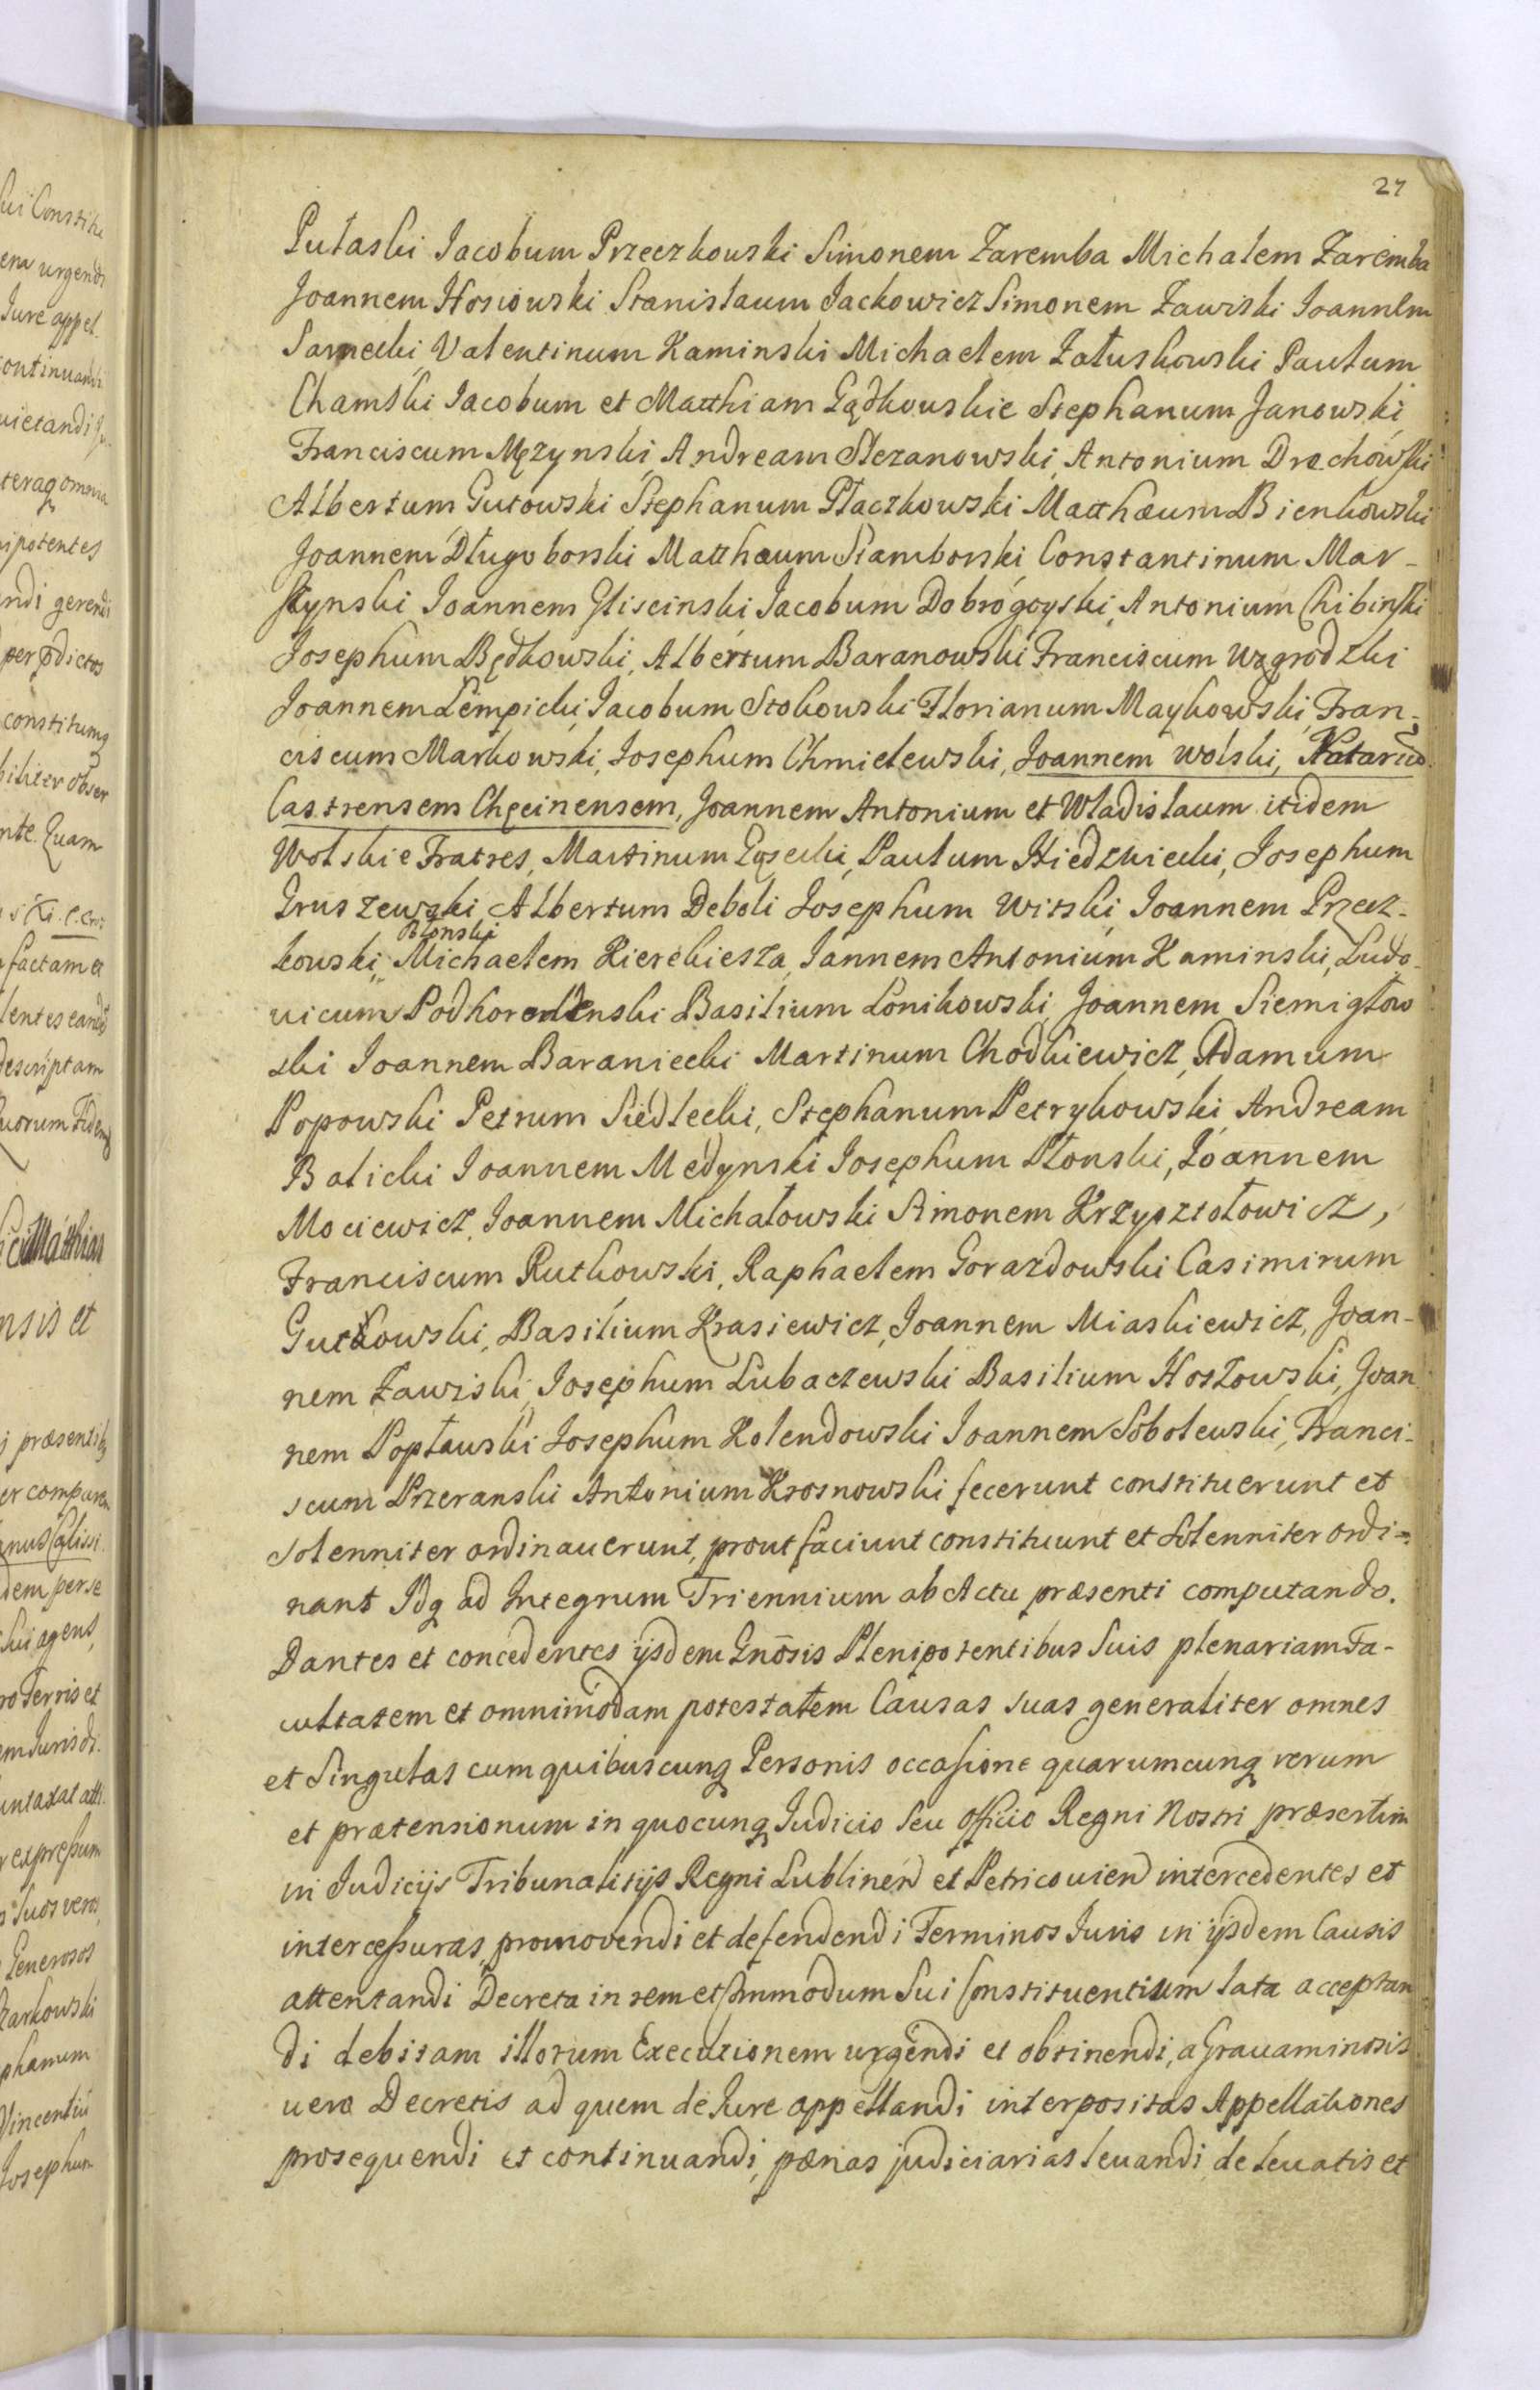 27
Pułaski Jacobum Przeczkowski Simonem Zaremba Michalem Zaremba
Joannem Hosiowski Stanislaum Jackowicz Simonem Zawiski Joannem
Sarnecki Valentinum Kaminski Michaelem Załuskowski Paulum
Chamski Jacobum et Matthiam Gądkouskie Stephanum Janowski,
Franciscum Męzynski, Andream Slezanowski, Antonium Drochowski
Albertum Gutowski Stephanum Płaczkowski Matthæum Bienkowski
Joannem Długoborski Matthæum Stamborski Constantinum Mar-
szynski Joannem Gliscinski Jacobum Dobrogoyski, Antonium Chibinski
Josephum Będkowski, Albertum Baranowski Franciscum Uzgrodzki
Joannem Łempicki, Jacobum Stokowski Florianum Maykowski, Fran-
ciscum Markowski, Josephum Chmielewski, Joannem Wolski, Notariũ
Castrensem Chęcinensem, Joannem Antonium et Wladislaum itidem
Wolskie Fratres, Martinum Gąsecki, Paulum Hiedzwiecki, Josephum
Gruszewski, Albertum Deboli Josephum Witski Joannem Przecz-
kowski, Błonski Michaelem Kierekiesza, Jannem Antonium Kaminski, Ludo-
uicum Podhorodenski Basilium Łonikowski, Joannem Siemigłow
ski Joannem Baraniecki Martinum Chodkiewicz, Adamum
Popowski Petrum Siedlecki, Stephanum Petrykowski, Andream
Balicki Joannem Medynski Josephum Płonski, Joannem
Mociewicz, Joannem Michałowski Simonem Krzysztołowicz,
Franciscum Rutkowski, Raphaelem Gorazdowski Casimirum
Gutkowski, Basilium Krasiewicz, Joannem Miaskiewicz, Joan-
nem Zawiski, Josephum Lubaczewski Basilium Hoszowski, Joan
nem Popławski Josephum Kolendowski Joannem Sobolewski, Franci-
scum Przeranski Antonium Krosnowski fecerunt constituerunt et
solenniter ordinauerunt, prout faciunt constituunt et solenniter ordi-
nant Idq ad Integrum Triennium ab Actu præsenti computando.
Dantes et concedentes ijsdem Gnõsis Plenipotentibus Suis plenariam Fa-
cultatem et omnimodam potestatem Causas suas generaliter omnes
et Singulas cum quibuscunq Personis occasione quarumcunq rerum
et prætensionum in quocunq Judicio seu Officio Regni Nostri præsertim
in Judicijs Tribunalitijs Regni Lublinen et Petricouien intercedentes et
intercessuras, promovendi et defendendi Terminos Juris in ijsdem Causis
attentandi Decreta in rem et Commodum Sui Constituentium lata acceptan
di debitam illorum Executionem urgendi et obtinendi, a Grauaminosis
uero Decretis ad quem de Jure appellandi interpositas Appellationes
prosequendi et continuandi, pœnas judiciarias leuandi de leuatis et